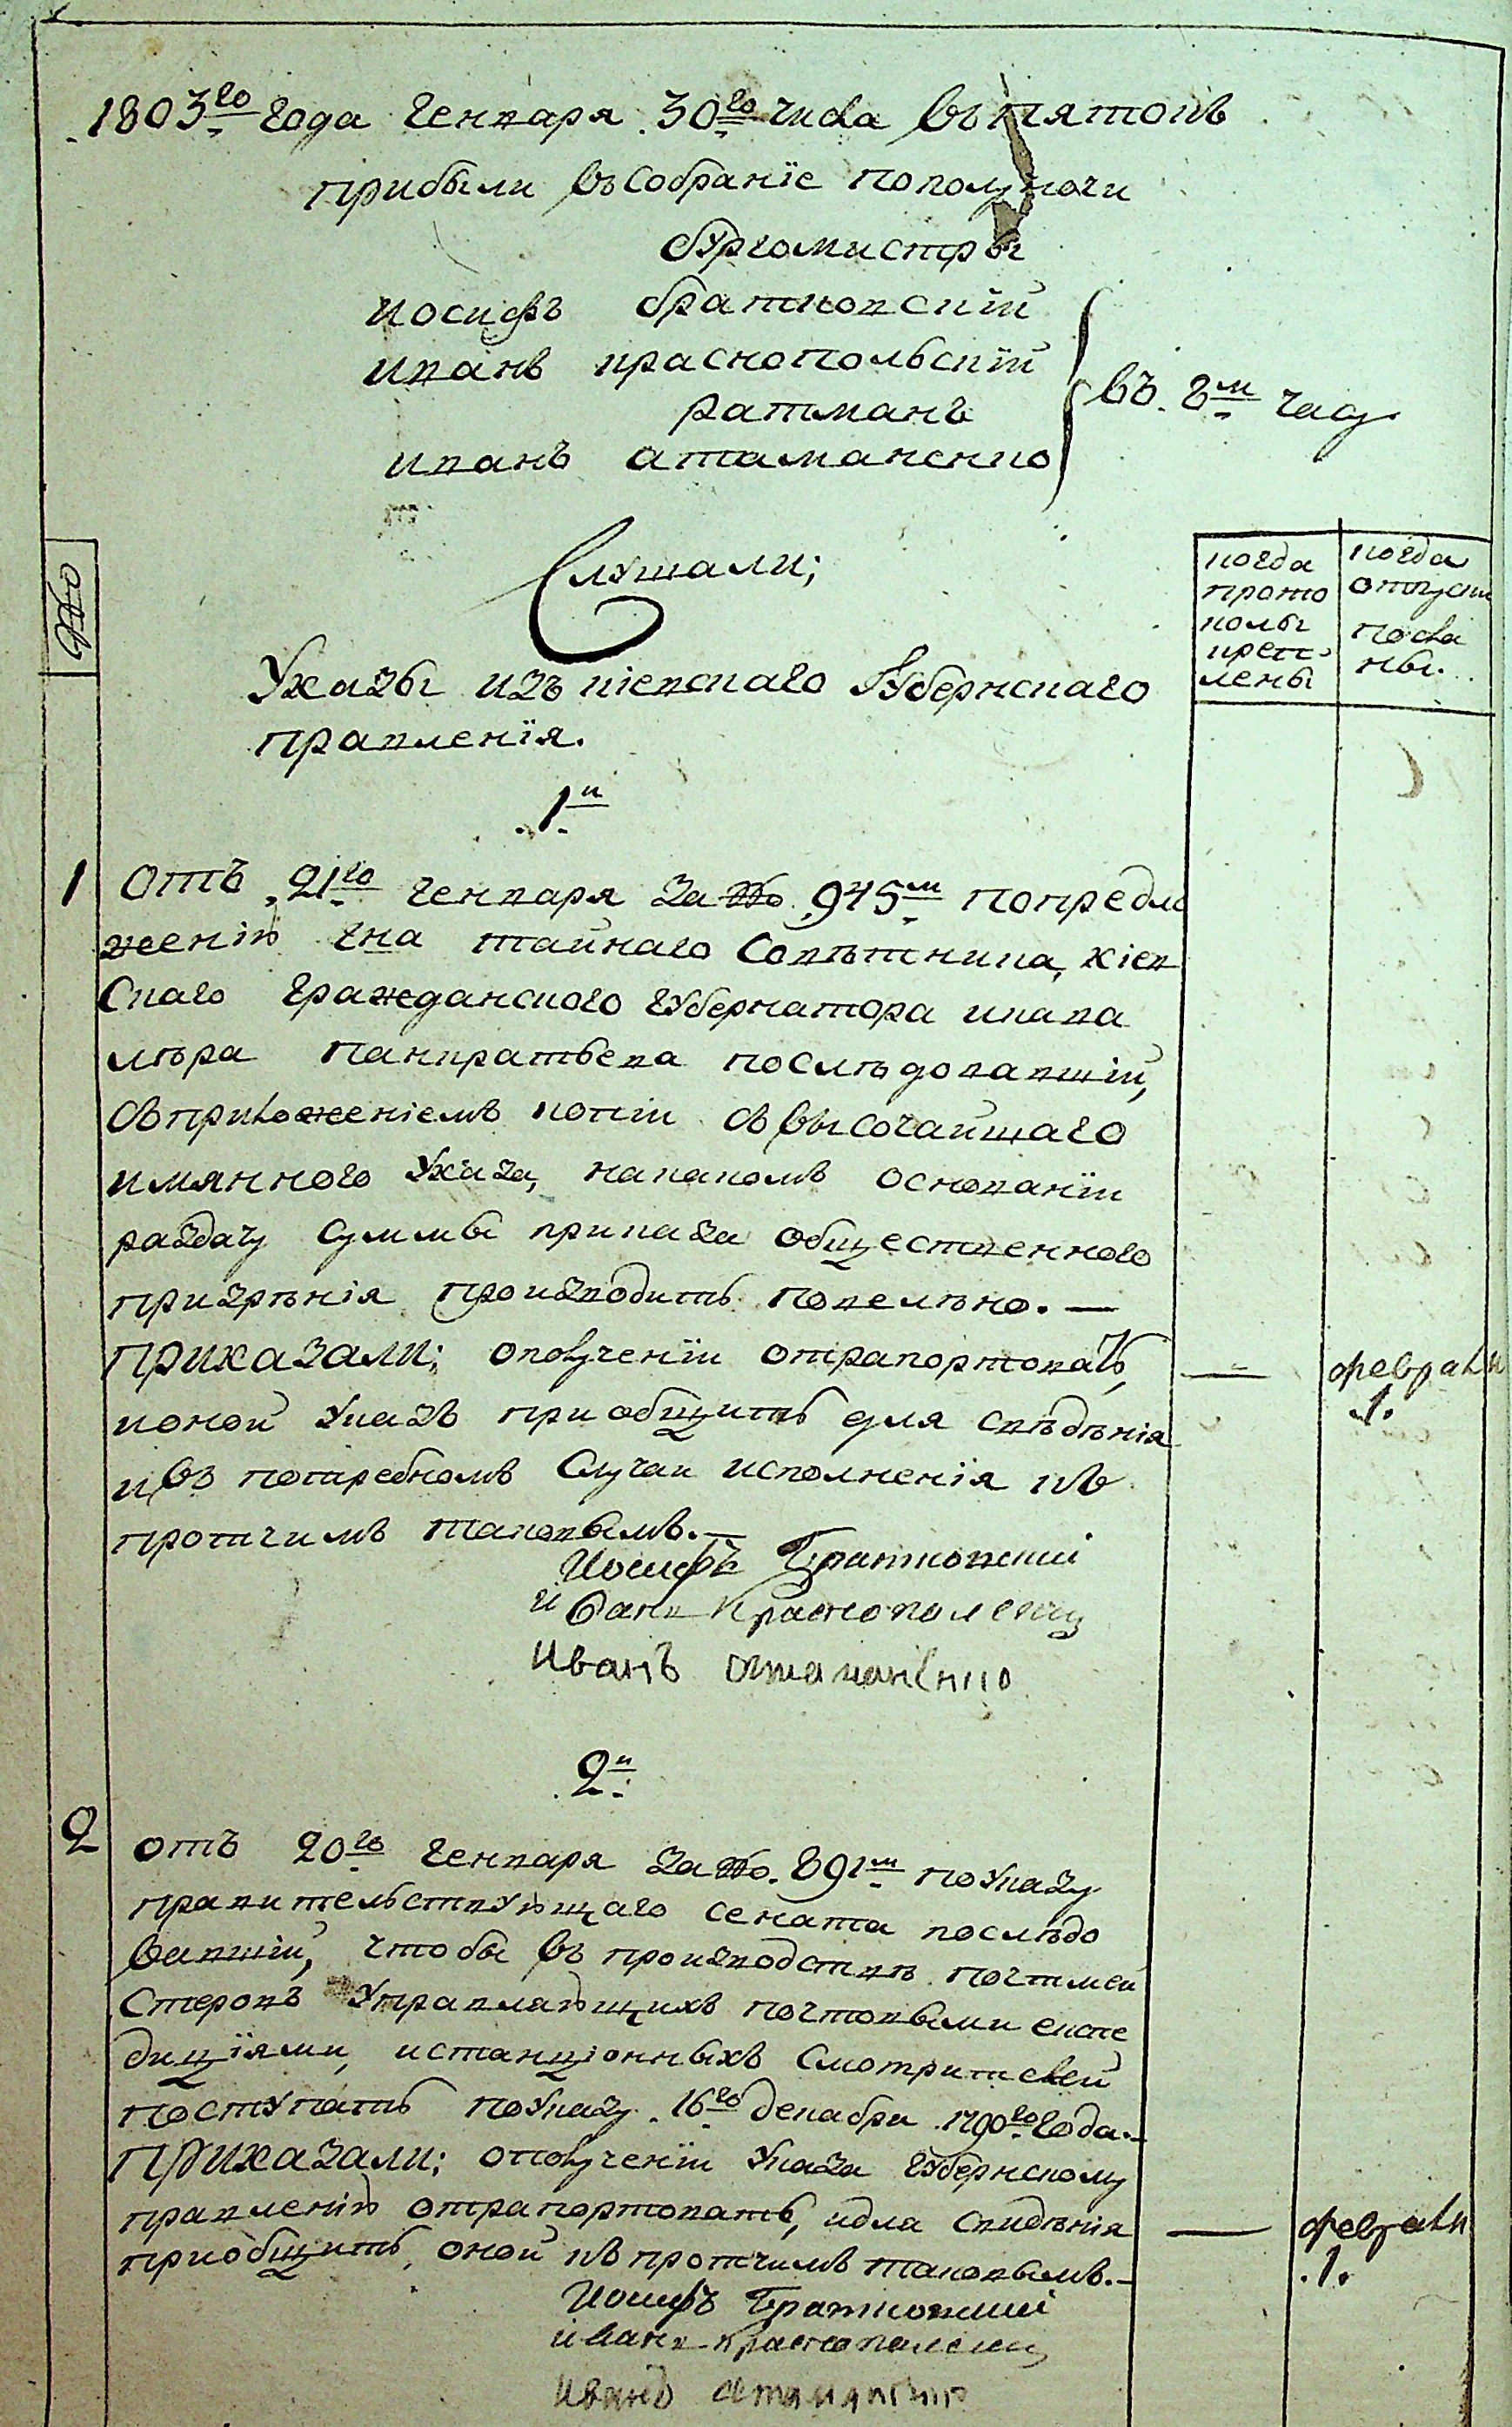 1803го года Генваря 30го числа въ пятокъ
прибыли въ собраніе пополуночи
бургомистры
иосифъ братковскій
иванъ краснопольскій
ратманъ
иванъ атаманенко
въ 8м часу
№о
Слушали;
когда
прото
колы
креп
лены
когда
отпуски
посла
ны.
Указы изъ кіевскаго Губернскаго
правленія.
1й
1 отъ 21го Генваря за №о 945м попредло
женію гна тайнаго Советника, кіев
скаго гражданского губернатора и кава
лѣра панкратьева последовавшій,
съ приложеніемъ копіи съ высочайшаго
имянного указа, на какомъ основаніи
раздачу суммы приказа общественного
призрѣнія производить повелѣно. —
приказали; о полученіи отрапортовать,
и оной указъ приобщить для свѣдѣнія
и въ потребномъ случаи исполненія къ
протчимъ таковымъ. —
— февраля
1.
Иосифъ Братковскій
иванъ Краснополскій
Иванъ атаманенко
2й
2 отъ 20го Генваря за №о 891м по указу
правительствующаго сената послѣдо
вавшій, чтобы въ производствѣ почтмей
стеровъ управляющихъ почтовыми експе
диціями, и станціонныхъ смотрителей
поступать по указу 16го декабря 1790го года. —
Приказали; о полученіи указа губернскому
правленію отрапортовать, и для свидѣнія
приобщить оной къ протчимъ таковымъ. —
— февраля
1.
Иосифъ Братковскій
иванъ краснополскій
Иванъ атаманенко